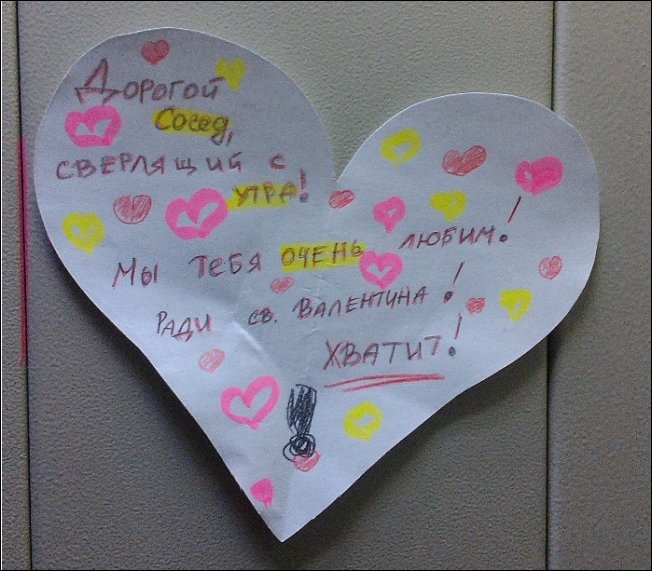 Дорогой
Сосед,
сверлящий с
утра!
Мы тебя очень любим!
Ради св. Валентина!
Хватит!
!